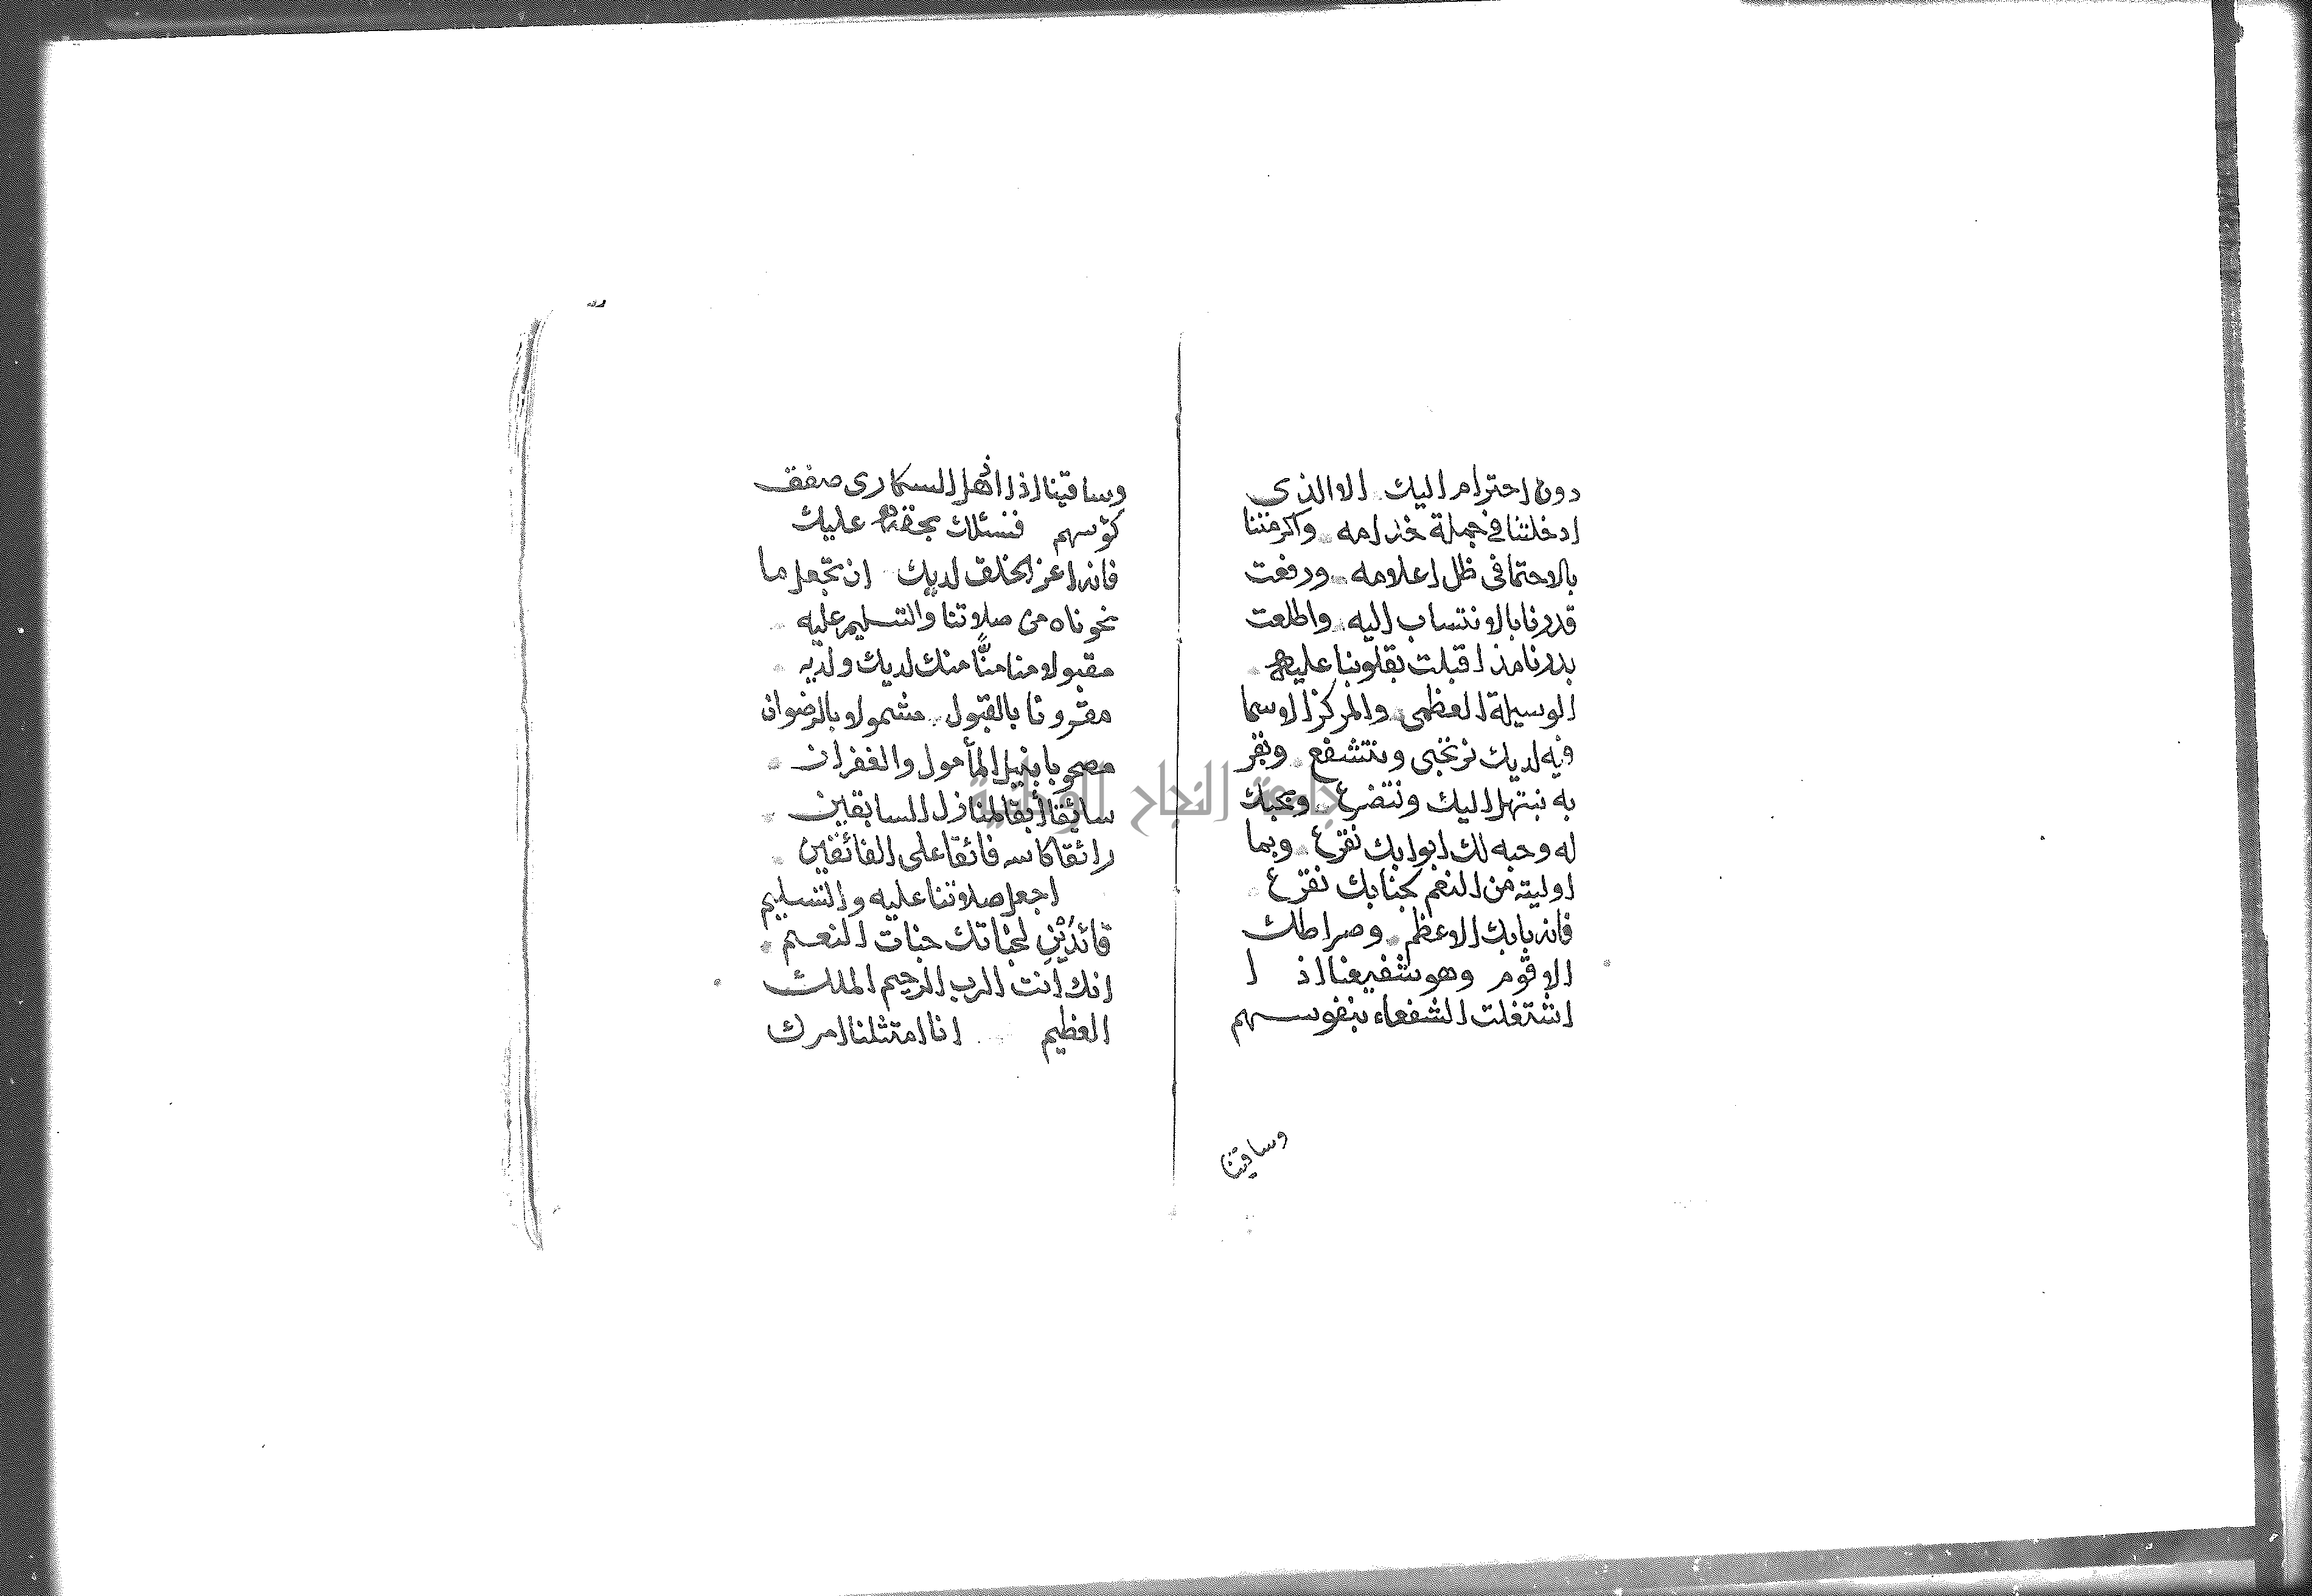 دون احترام اليك الا الذى
ادخلتنا فى جملة خدامه واكرمتنا
بالاحتما فى ظل اعلامه ورفعت
قدرنا بالانتساب اليه واطلعت
بدرنا مذ اقبلت بقلوبنا عليه
الوسيلة العظمى والمركز الاسما
فيه لديك نرتجى ونتشفع
به نبتهل اليك ونتضرع وبحبك
له وحبه لك ابوابك نقرع وبما
اوليته من النعم
فانه بابك الاعظم وصراطك
الاقوم وهو شفيعنا اذ ا
اشتغلت الشفعاء بنفوسهم
وساقينا
وساقينا اذا انهل السكارى صفف
كؤسهم فنسئلك بحقه عليك
فانه اعز الخلق لديك ان تجعل ما
نحوناه من صلاوتنا والتسليم عليه
مقبولا منا منًّا منك لديك ولديه
مقرونا بالقبول مشمولا بالرضوان
مصحوبا بنيل المأمول والغفران
سائقا لمنازل السابقين
رائقا كاسه فائقا على الفائقين
اجعل صلاوتنا عليه والتسليم
قائدَيْنِ لجناتك جنات النعيم
انك انت الرب الرحيم الملك
العظيم انا امتثلنا امرك
جامعة النجاح الوطنية